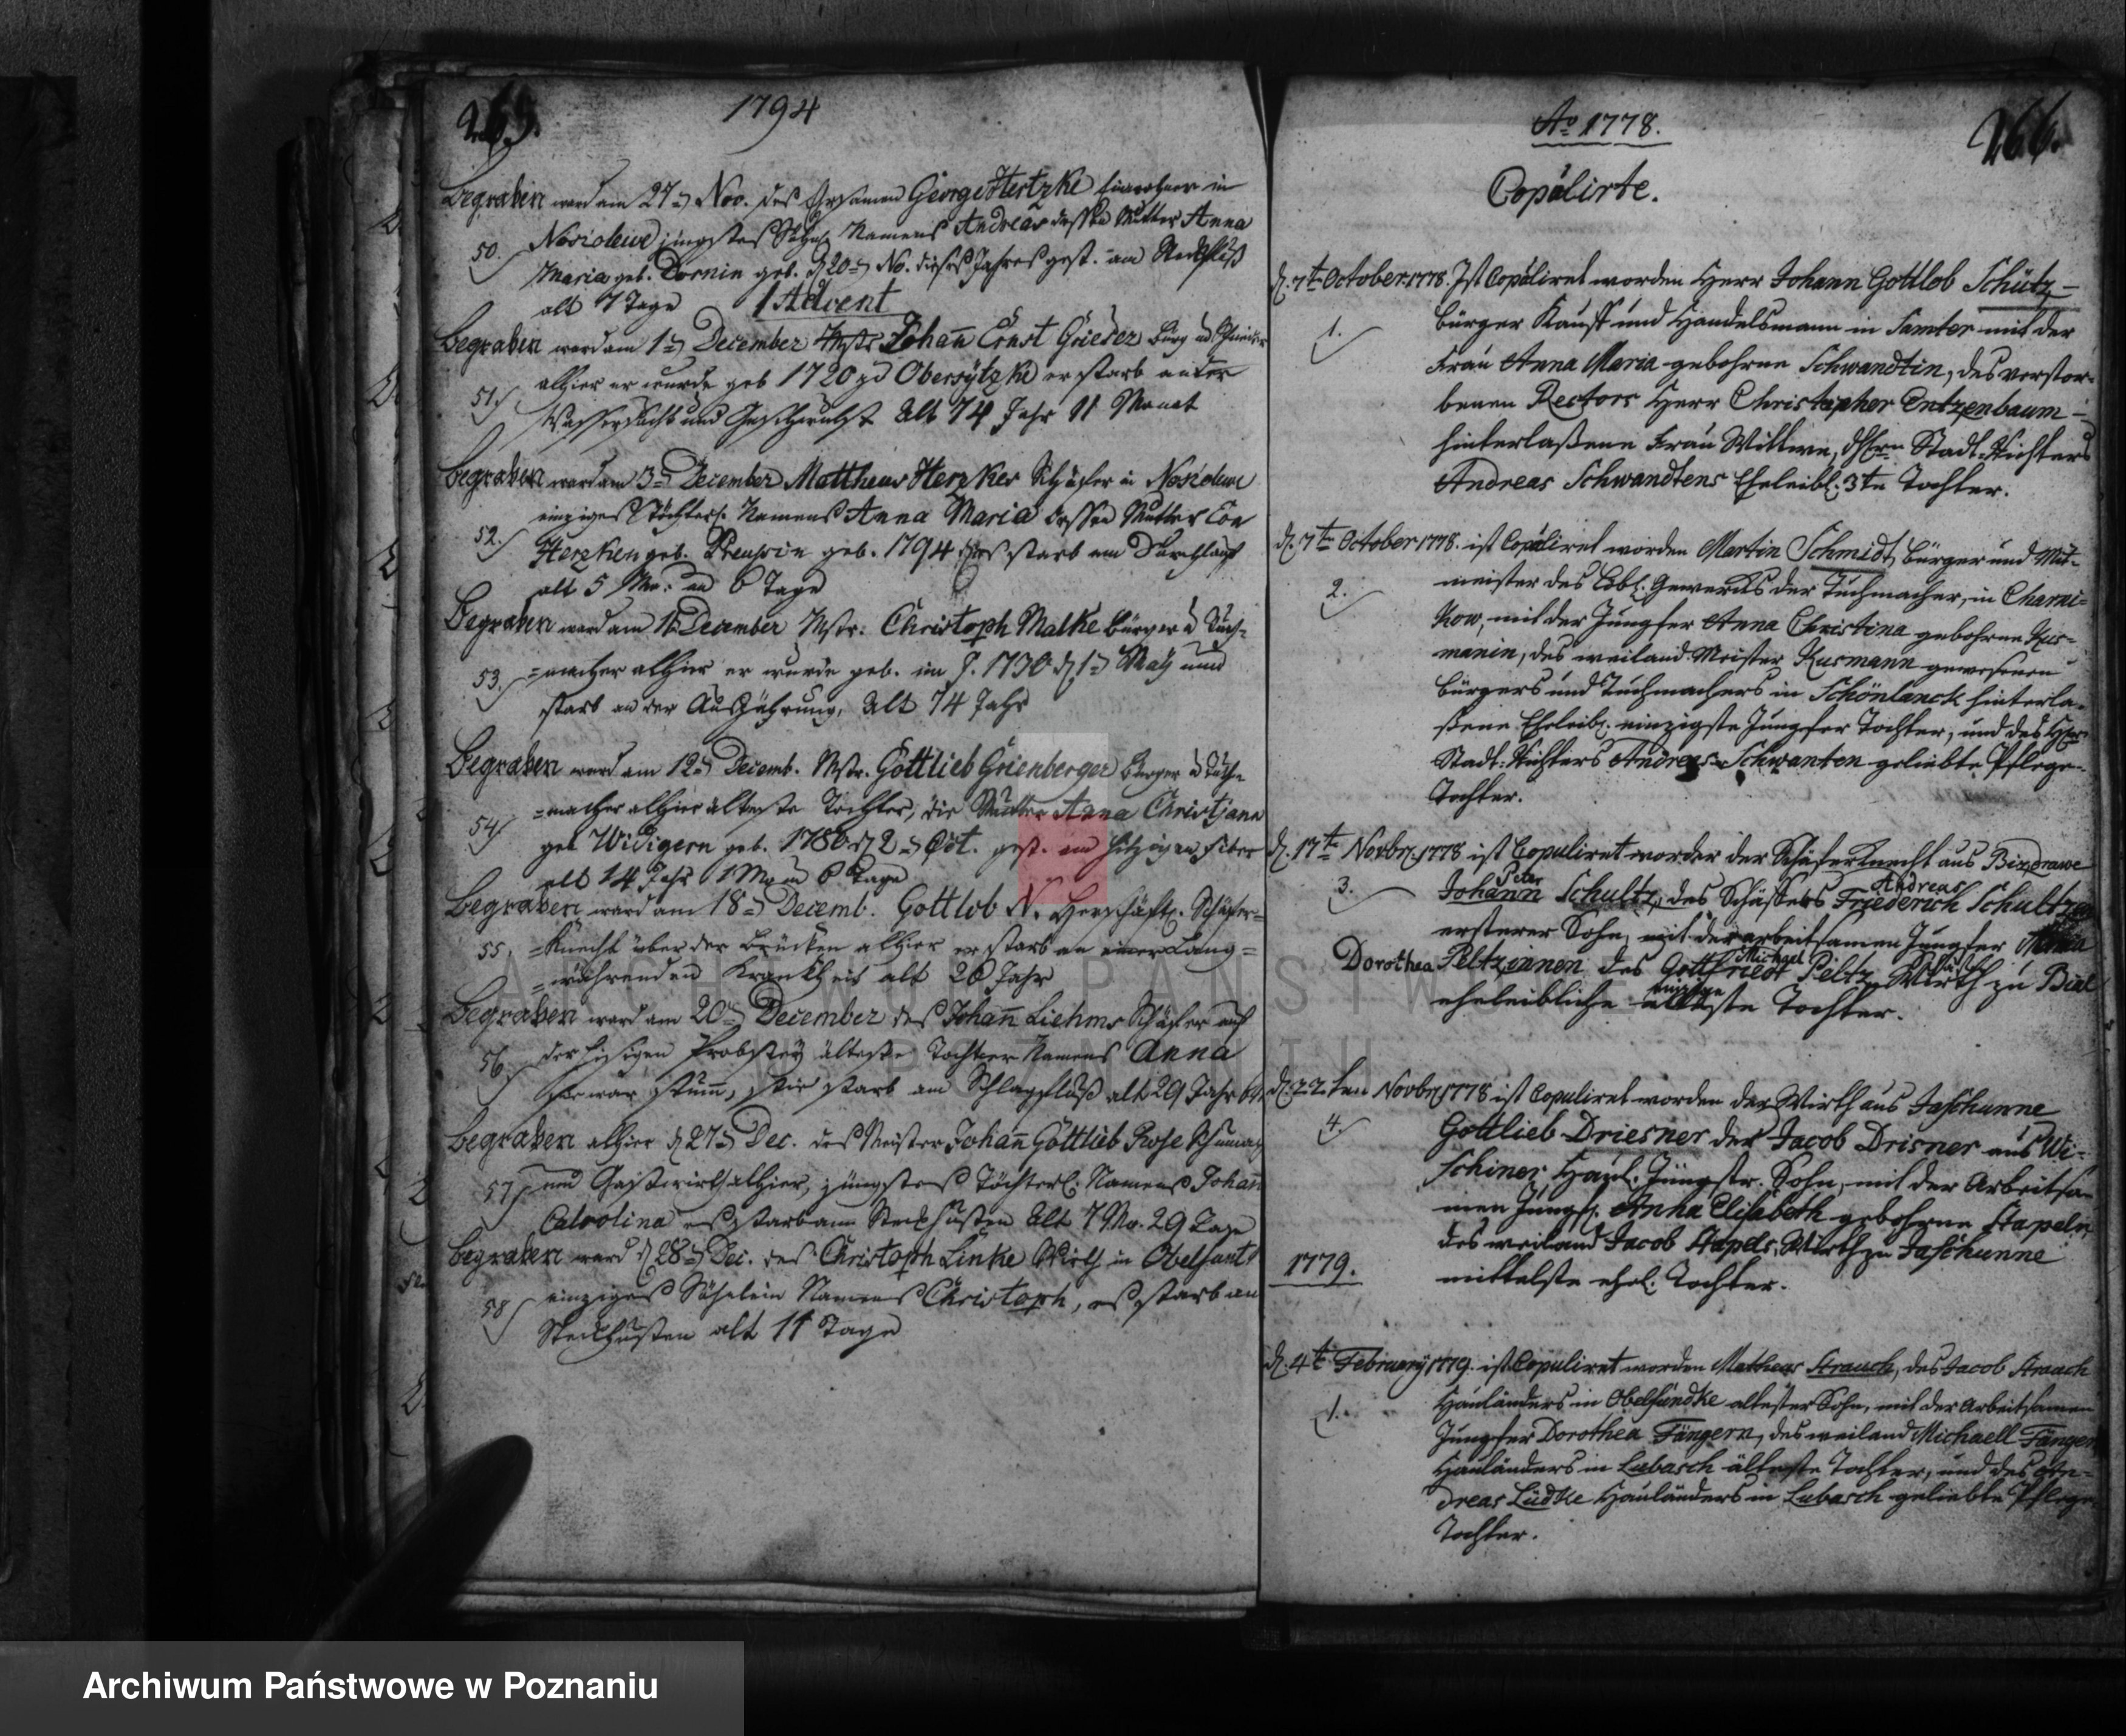 265.
1794
Begraben ward am 27 Nov. des Ehrsamen George Hertzke Einwohner in
50. Nosiolewe jüngstes Söhnl. Namens Andreas dessen Mutter Anna
Maria geb. Dornin geb. d 20 No. dieses Jahres gest. am Steckfluß
alt 7 Tage 1 Advent
Begraben ward am 1 December Mstr Johann Ernst Grieser Bürg und
51. allhier er wurde geb 1720 zu Obersytzke er starb an der
Wassersucht und Geschwulst Alt 74 Jahr 11 Monat
Begraben ward am 3 December Mattheus Herzkes Schäfer in Nosiolewe
52. einziges Töchterl. Namens Anna Maria dessen Mutter
Herzken geb. Preussin geb. 1794 starb am
alt 5 Mo: und 6 Tage
Begraben ward am December Mstr: Christoph Malke Bürger u Tuch=
53. =macher allhier er wurde geb. im J. 1730 d 1 May und
starb an der Auszehrung, Alt 74 Jahr
Begraben ward am 12 Decemb. Mstr. Gottlieb Grienberger Bürger u Tuch=
54 =macher allhier älteste Tochter, die Mutter Anna Christjana
geb Widigern geb. 1780 d 2 Oct. gest. am hitzigen Fieber
alt 14 Jahr 1 Mo u 6 Tage
Begraben ward am 18 Decemb. Gottlob N. Herschäftl. Schäfer=
55. =Knecht über der Brücken allhier er starb an einer Lang=
=währenden Krankheit alt 26 Jahr
Begraben ward am 20 December des Johann Liehms Schäfer auf
56. der hiesigen Probstey älteste Tochter Namens Anna
sie war stumm, sie starb am Schlagfluß alt 29 Jahr
Begraben allhier d 27 Dec. des Meister Johann Gottlieb Rose
57 und Gastwirth allhier, jüngstes Töchterl. Namens Johan
Calrolina es starb am Steckhusten Alt 7 Mo. 29 Tage
Begraben ward d 28 Dec. des Christoph Linke Wirth in
58 einziges Söhnlein Namens Christoph, es starb an
Steckhusten alt 11 Tage
Ao 1778.
266.
Copulirte.
d. 7t October 1778. Ist Copuliret worden Herr Johann Gottlob Schütz
1. Bürger Kauff und Handelsmann in Samter mit der
Frau Anna Maria gebohrne Schwandtin, des verstor-
benen Rectors Herr Christopher Entzenbaum
hinterlaßene Frau Wittwe, Stadt-Richters
Andreas Schwandtens Eheleibl. 3te Tochter.
d. 7t October 1778. ist Copuliret worden Martin Schmidt, Bürger und Mit-
2. meister des Löbl. Gewercks der Tuchmacher, in Charni=
kow, mit der Jungfer Anna Christina gebohrne Kus=
manin, des weiland Meister Kusmann gewesenen
Bürgers und Tuchmachers in Schönlanck hinterla-
ßene Eheleibl. einzigste Jungfer Tochter, und des
Stadt-Richters Andreas Schwanten geliebte Pflege-
Tochter.
d. 17t Novbr. 1778 ist Copuliret worden der Schäferknecht aus
Peter Andreas
3. Johann Schultz, des Schäffers Friederich Schultzen
ersterer Sohn, mit der arbeitsamen Jungfer
Michael
Dorothea Peltzinnen des Gottfriedt Peltz Wirth zu
einzige
eheleibliche älteste Tochter.
d. 22ten Novbr 1778 ist Copuliret worden der Wirth aus Jaschunne
4. Gottlieb Driesner der Jacob Drisner aus Wi-
schiner Haul. Jüngstr. Sohn, mit der Arbeitsa-
men Jungf. Anna Elisabeth gebohrne Stapeln
des weiland Jacob Stapels, Wirth zu Jaschunne
mittelste ehel. Tochter.
1779.
d. 4t February 1779. ist Copuliret worden Matheus Strauch, des Jacob Strauch
1. Hauländers in Obelsundke ältester Sohn, mit der Arbeitsamen
Jungfer Dorothea Fängern, des weiland Michaell Fänger
Hauländers in Lubasch älteste Tochter, und des An-
dreas Lüdke Hauländers in Lubasch geliebte Pflege
Tochter.
ARCHIWUM PAŃSTWOWE
W POZNANIU
Archiwum Państwowe w Poznaniu